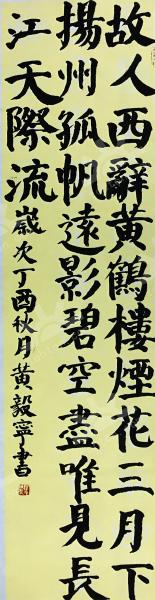 故人西辭黃鶴樓煙花三月下
揚州孤帆遠影碧空盡唯見長
江天際流 歲次丁酉秋月黃毅寧書